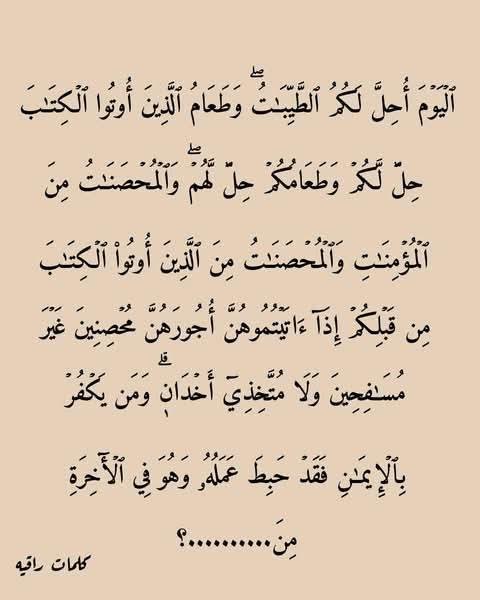 ٱلۡيَوۡمَ أُحِلَّ لَكُمُ ٱلطَّيِّبَٰتُۖ وَطَعَامُ ٱلَّذِينَ أُوتُوا ٱلۡكِتَٰبَ
حِلّٞ لَّكُمۡ وَطَعَامُكُمۡ حِلّٞ لَّهُمۡۖ وَٱلۡمُحۡصَنَٰتُ مِنَ
ٱلۡمُؤۡمِنَٰتِ وَٱلۡمُحۡصَنَٰتُ مِنَ ٱلَّذِينَ أُوتُواْ ٱلۡكِتَٰبَ
مِن قَبۡلِكُمۡ إِذَآ ءَاتَيۡتُمُوهُنَّ أُجُورَهُنَّ مُحۡصِنِينَ غَيۡرَ
مُسَٰفِحِينَ وَلَا مُتَّخِذِيٓ أَخۡدَانٖۗ وَمَن يَكۡفُرۡ
بِٱلۡإِيمَٰنِ فَقَدۡ حَبِطَ عَمَلُهُۥ وَهُوَ فِي ٱلۡأٓخِرَةِ
مِنَ..........؟
كلمات راقيه